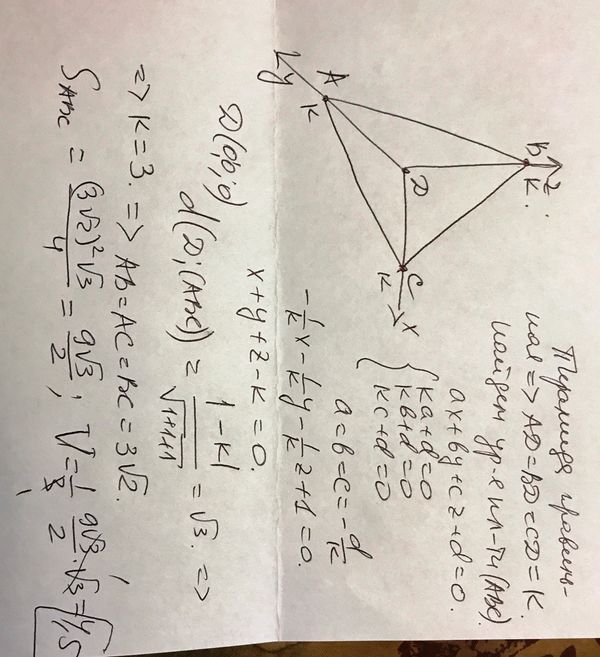 Пирамида правиль-
ная => AD=BD=CD=K.
Найдем ур-е пл-ти (ABC).
ax+by+cz+d=0.
{ka+d=0
kb+d=0
kc+d=0
a=b=c=-d/k
-1/k x - 1/k y - 1/k z + 1 = 0.
x+y+z-k=0.
D(0;0;0)
d(D;(ABC)) = |-k|/√(1+1+1) = √3. =>
=> k=3. => AB=AC=BC=3√2.
S ABC = (3√2)²√3/4 = 9√3/2; V = 1/3 · 9√3/2 · √3 = 4,5
A
K
y
B
K
z
D
C
K
x